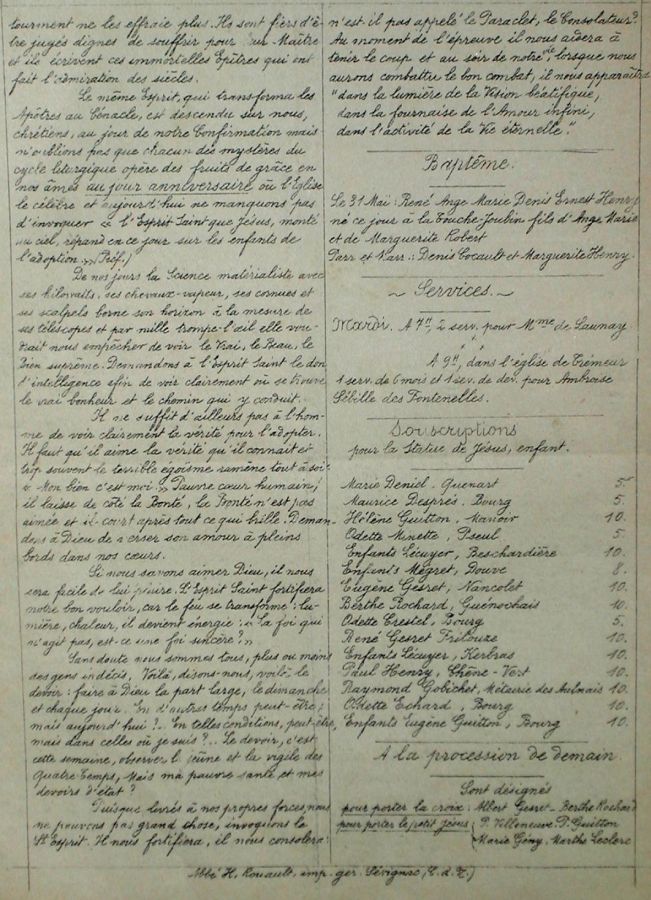 tourment ne les effraie plus. Ils sont fiers d'ê-
tre jugés dignes de souffrir pour leur Maître
et ils écrivent ces immortelles Epîtres qui ont
fait l'admiration des siècles.
Le même Esprit, qui transforma les
Apôtres au Cénacle, est descendu sur nous,
chrétiens, au jour de notre Confirmation mais
n'oublions pas que chacun des mystères du
cycle liturgique opère des fruits de grâce en
nos âmes au jour anniversaire où l'Eglise
le célèbre et aujourd'hui ne manquons pas
d'invoquer « l'Esprit Saint que Jésus, monté
au ciel, répand en ce jour sur les enfants de
l'adoption. » (Préf.)
De nos jours la Science matérialiste avec
ses kilowatts, ses chevaux-vapeur, ses cornues et
ses scalpels borne son horizon à la mesure de
ses télescopes et par mille trompe-l'œil elle vou-
drait nous empêcher de voir le Vrai, le Beau, le
Bien suprême. Demandons à l'Esprit Saint le don
d'intelligence afin de voir clairement où se trouve
le vrai bonheur et le chemin qui y conduit.
Il ne suffit d'ailleurs pas à l'hom-
me de voir clairement la vérité pour l'adopter.
Il faut qu'il aime la vérité qu'il connaît et
trop souvent le terrible egoïsme ramène tout à soi:
« Mon bien c'est moi. » Pauvre cœur humain,
il laisse de côté la Bonté, la Bonté n'est pas
aimée et il court après tout ce qui brille. Deman-
dons à Dieu de verser son amour à pleins
bords dans nos cœurs.
Si nous savons aimer Dieu, il nous
sera facile de lui plaire. L'Esprit Saint fortifiera
notre bon vouloir, car le feu se transforme: lu-
mière, chaleur, il devient énergie: « La foi qui
n'agit pas, est-ce une foi sincère? »
Sans doute nous sommes tous, plus ou moins
des gens indécis, Voilà, disons-nous, voilà le
devoir: faire à Dieu la part large, le dimanche
et chaque jour. En d'autres temps peut-être,
mais aujourd'hui?.. En telles conditions, peut-être,
mais dans celles où je suis?.. Le devoir, c'est
cette semaine, observer le jeûne et la vigile des
Quatre-Temps, Mais ma pauvre santé et mes
devoirs d'état?
Puisque livrés à nos propres forces, nous
ne pouvons pas grand chose, invoquons le
St Esprit. Il nous fortifiera, il nous consolera:
n'est il pas appelé le Paraclet, le Consolateur?
Au moment de l'épreuve il nous aidera à
tenir le coup et au soir de notre vie, lorsque nous
aurons combattu le bon combat, il nous apparaîtra
"dans la lumière de la Vision béatifique,
dans la fournaise de l'Amour infini,
dans l'activité de la Vie éternelle."
Baptême.
Le 31 Mai: René Ange Marie Denis Ernest Henry
né ce jour à la Touche-Joubin fils d'Ange Marie
et de Marguerite Robert
Parr. et Marr.: Denis Cocault et Marguerite Henry.
~ Services. ~
Mardi. A 7h, 2 serv. pour Mme de Launay.
A 9h, dans l'église de Trémeur
1 serv. de 6 mois et 1 serv. de dév. pour Ambroise
Sébille des Fontenelles.
Souscriptions
pour la Statue de Jésus, enfant.
Marie Deniel. Quenart 5.
Maurice Després. Bourg 5.
Hélène Guitton, Manoir 10.
Odette Minette, Pseul 5.
Enfants Lécuyer, Beschardière 10.
Enfants Mégret, Douve 8.
Eugène Gesret, Nancolet 10.
Berthe Rochard, Guénochais 10.
Odette Crestel, Bourg 5.
René Gesret Frilouze 10.
Enfants Lécuyer, Kerbras 10.
Paul Henry, Chêne-Vert 10.
Raymond Gobichet, Métairie des Aulnais 10.
Odette Echard, Bourg 10.
Enfants Eugène Guitton, Bourg 10.
A la procession de demain
Sont désignés
pour porter la croix: Albert Gesret - Berthe Rochard
pour porter le petit Jésus { P. Villeneuve. P. Guitton
Marie Gény. Marthe Leclerc
Abbé H. Rouault, imp. ger. Sévignac (C. d. N.)